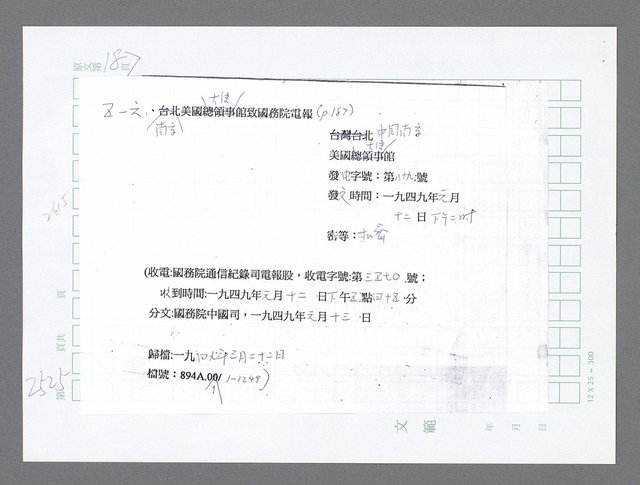 原文第187頁
五-六、台北美國總領事館致國務院電報(p.187)
大使
南京
台灣台北 中國南京
大使
美國總領事館
發電字號：第八九號
發文時間：一九四九年元月
十二日下午二時
密等：機密
(收電:國務院通信紀錄司電報股，收電字號:第三五七〇號；
收到時間:一九四九年元月十二日下午五點四十五分
分文:國務院中國司，一九四九年元月十三日
歸檔:一九四九年三月二十二日
檔號：894A.00/1-1249)
2615
頁
頁共
2525
第
文範
年 月 日
12 X 25 = 300